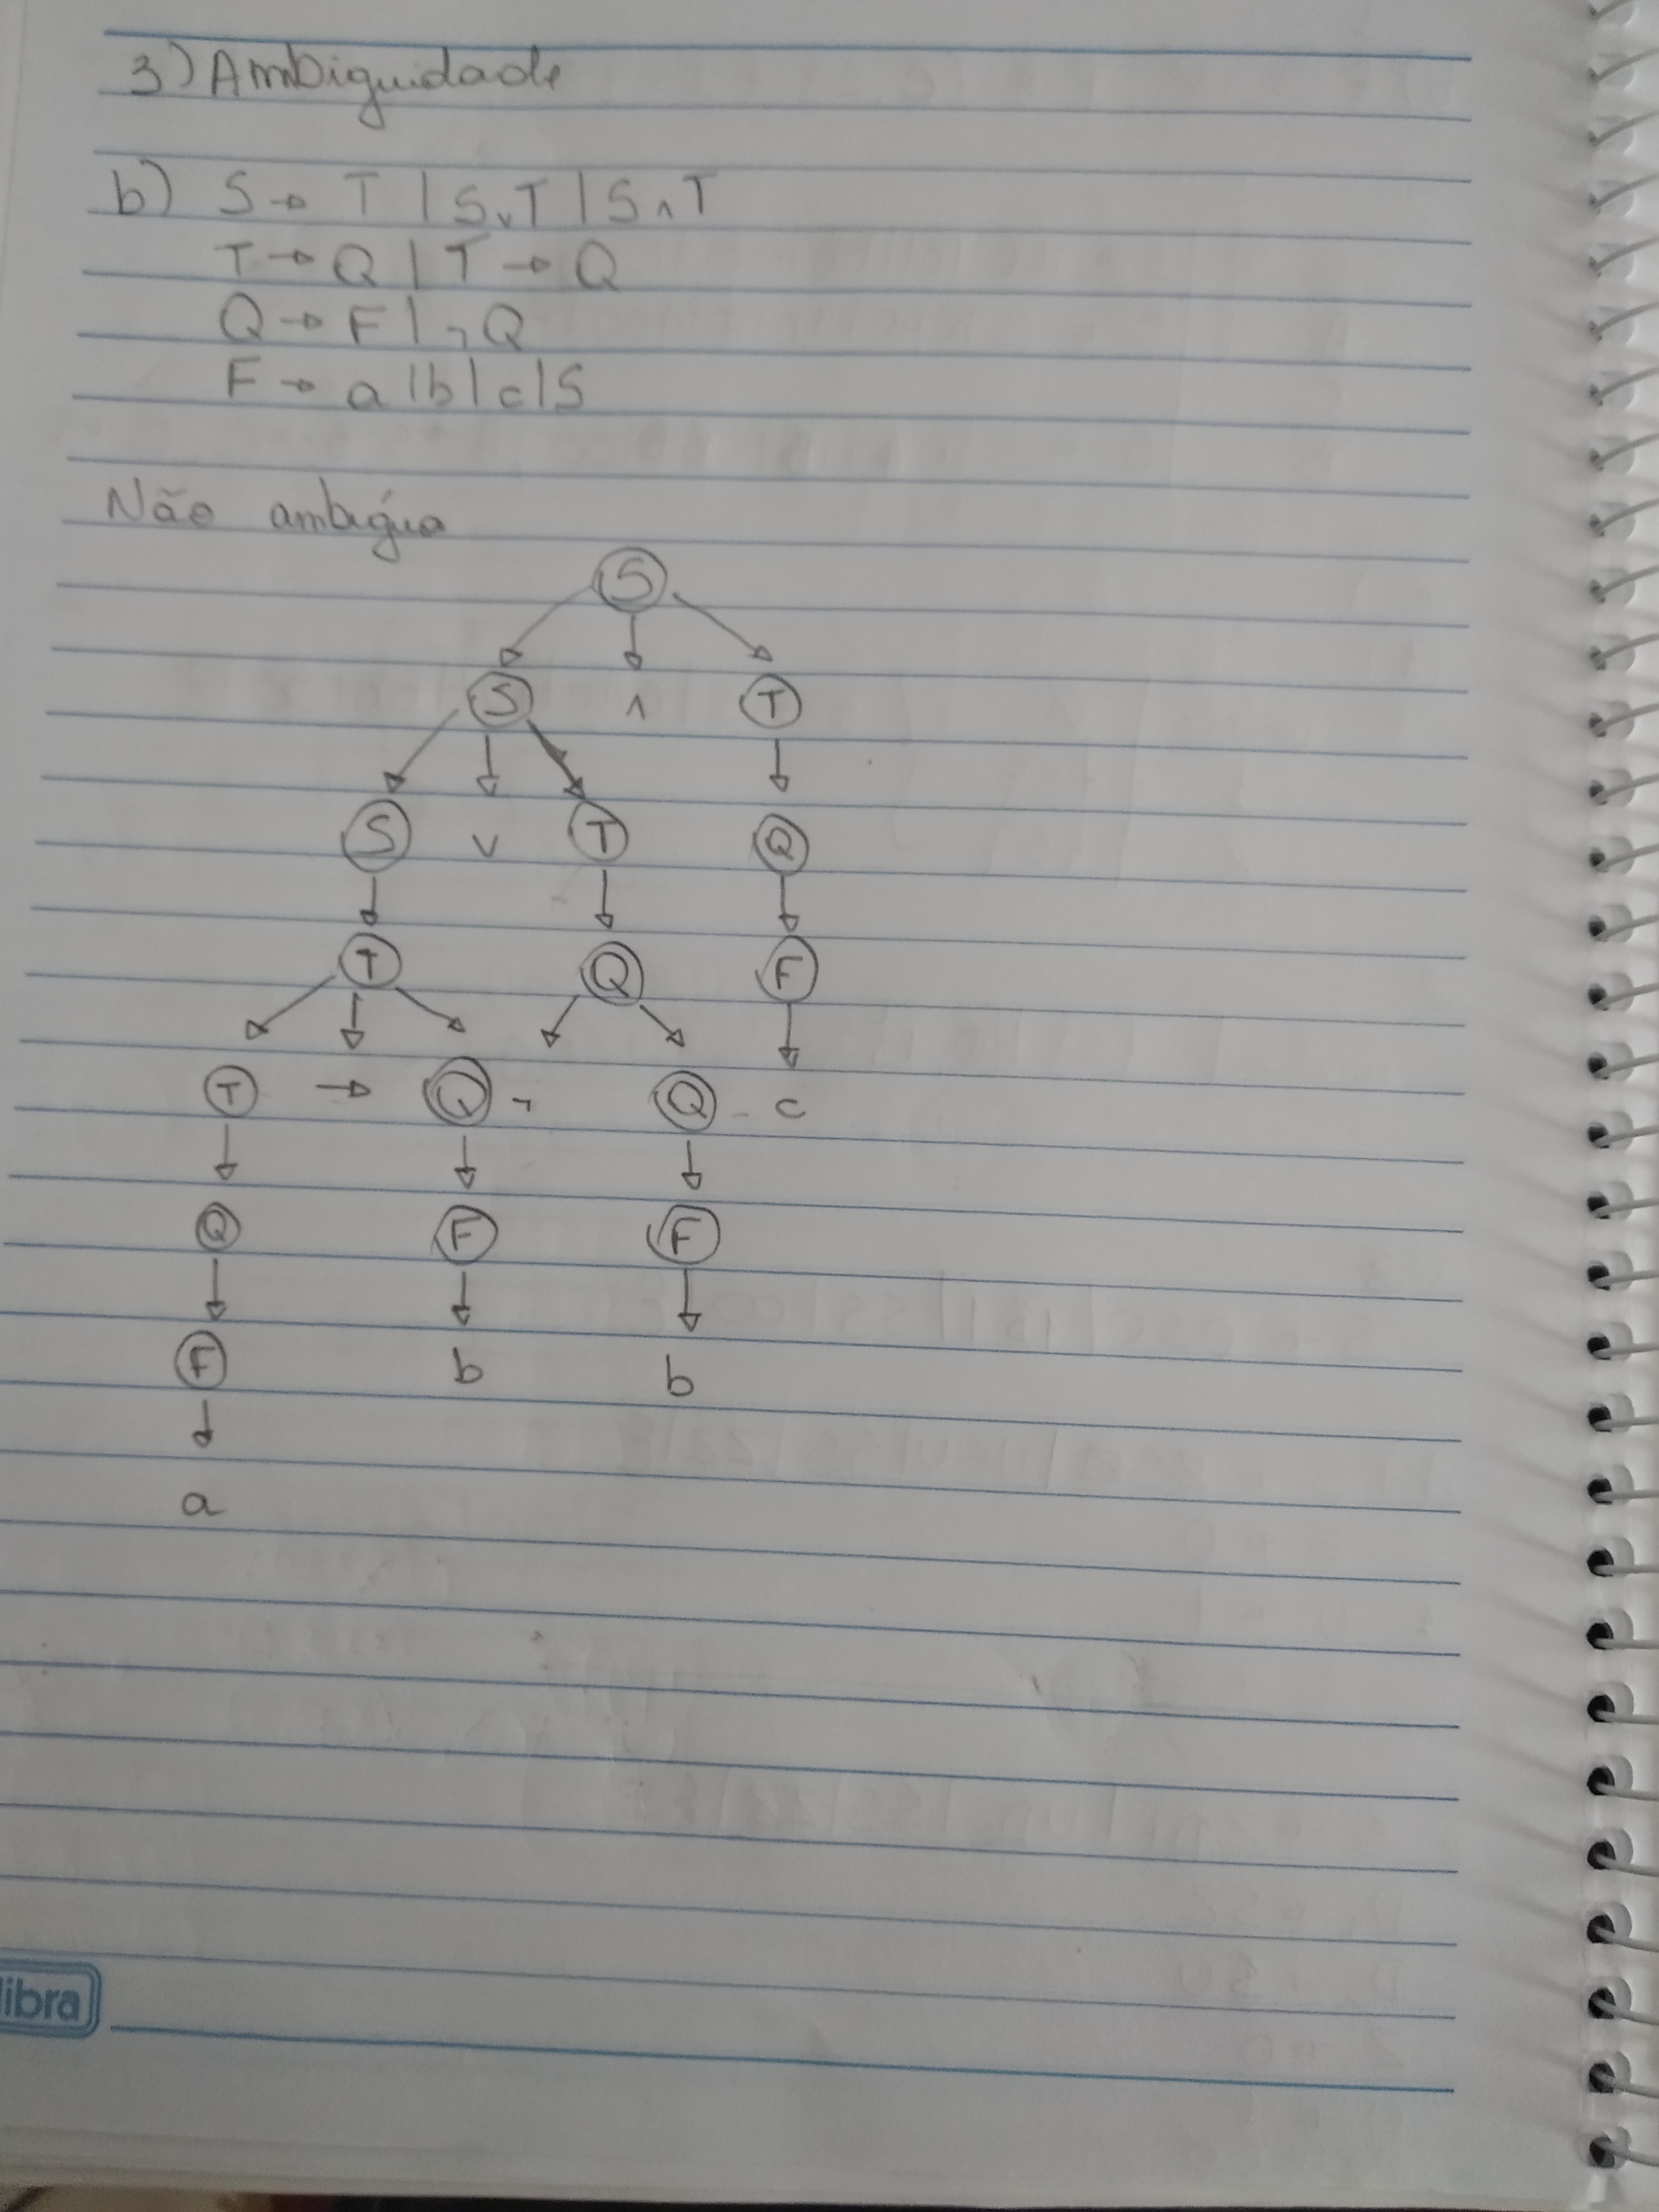 3) Ambiguidade
b) S → T | S ∨ T | S ∧ T
T → Q | T → Q
Q → F | ¬ Q
F → a | b | c | S
Não ambígua
S
S ∧ T
S ∨ T Q
T Q F
T → Q ¬ Q c
Q F F
F b b
a
libra